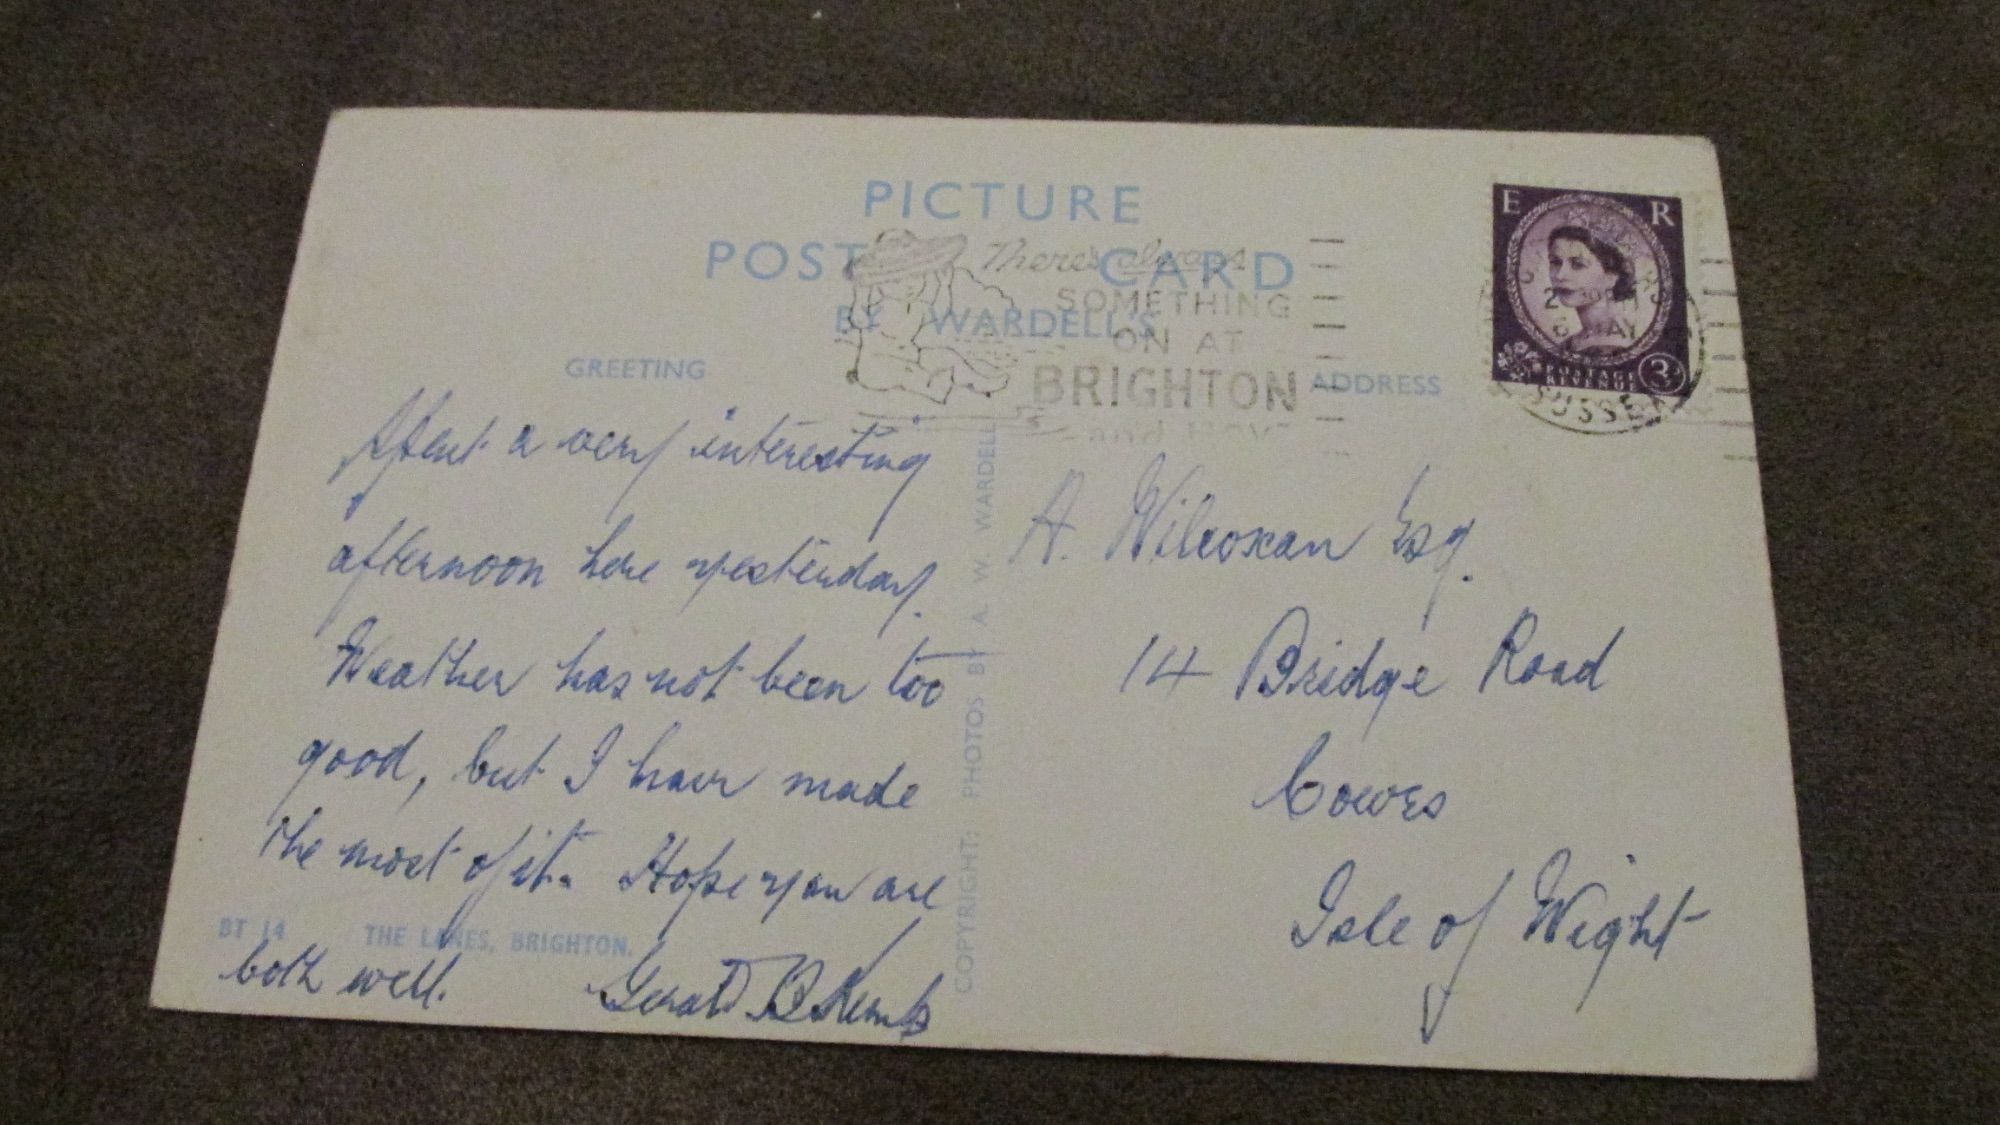 PICTURE
POST CARD
BY WARDELL'S
There's always
SOMETHING
ON AT
BRIGHTON
E R
POSTAGE
REVENUE
3
MAY
SUSSEX
GREETING
ADDRESS
Spent a very interesting
afternoon here yesterday.
Weather has not been too
good, but I have made
the most of it. Hope you are
both well.
Gerald
BT 14 THE LANES, BRIGHTON.
COPYRIGHT: PHOTOS BY A. W. WARDELL
A. Wilcoxan Esq.
14 Bridge Road
Cowes
Isle of Wight